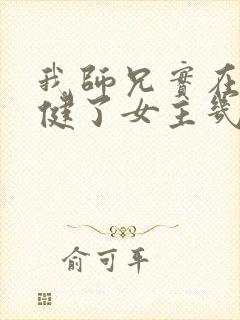 我師兄實在
健了女主幾
俞可平